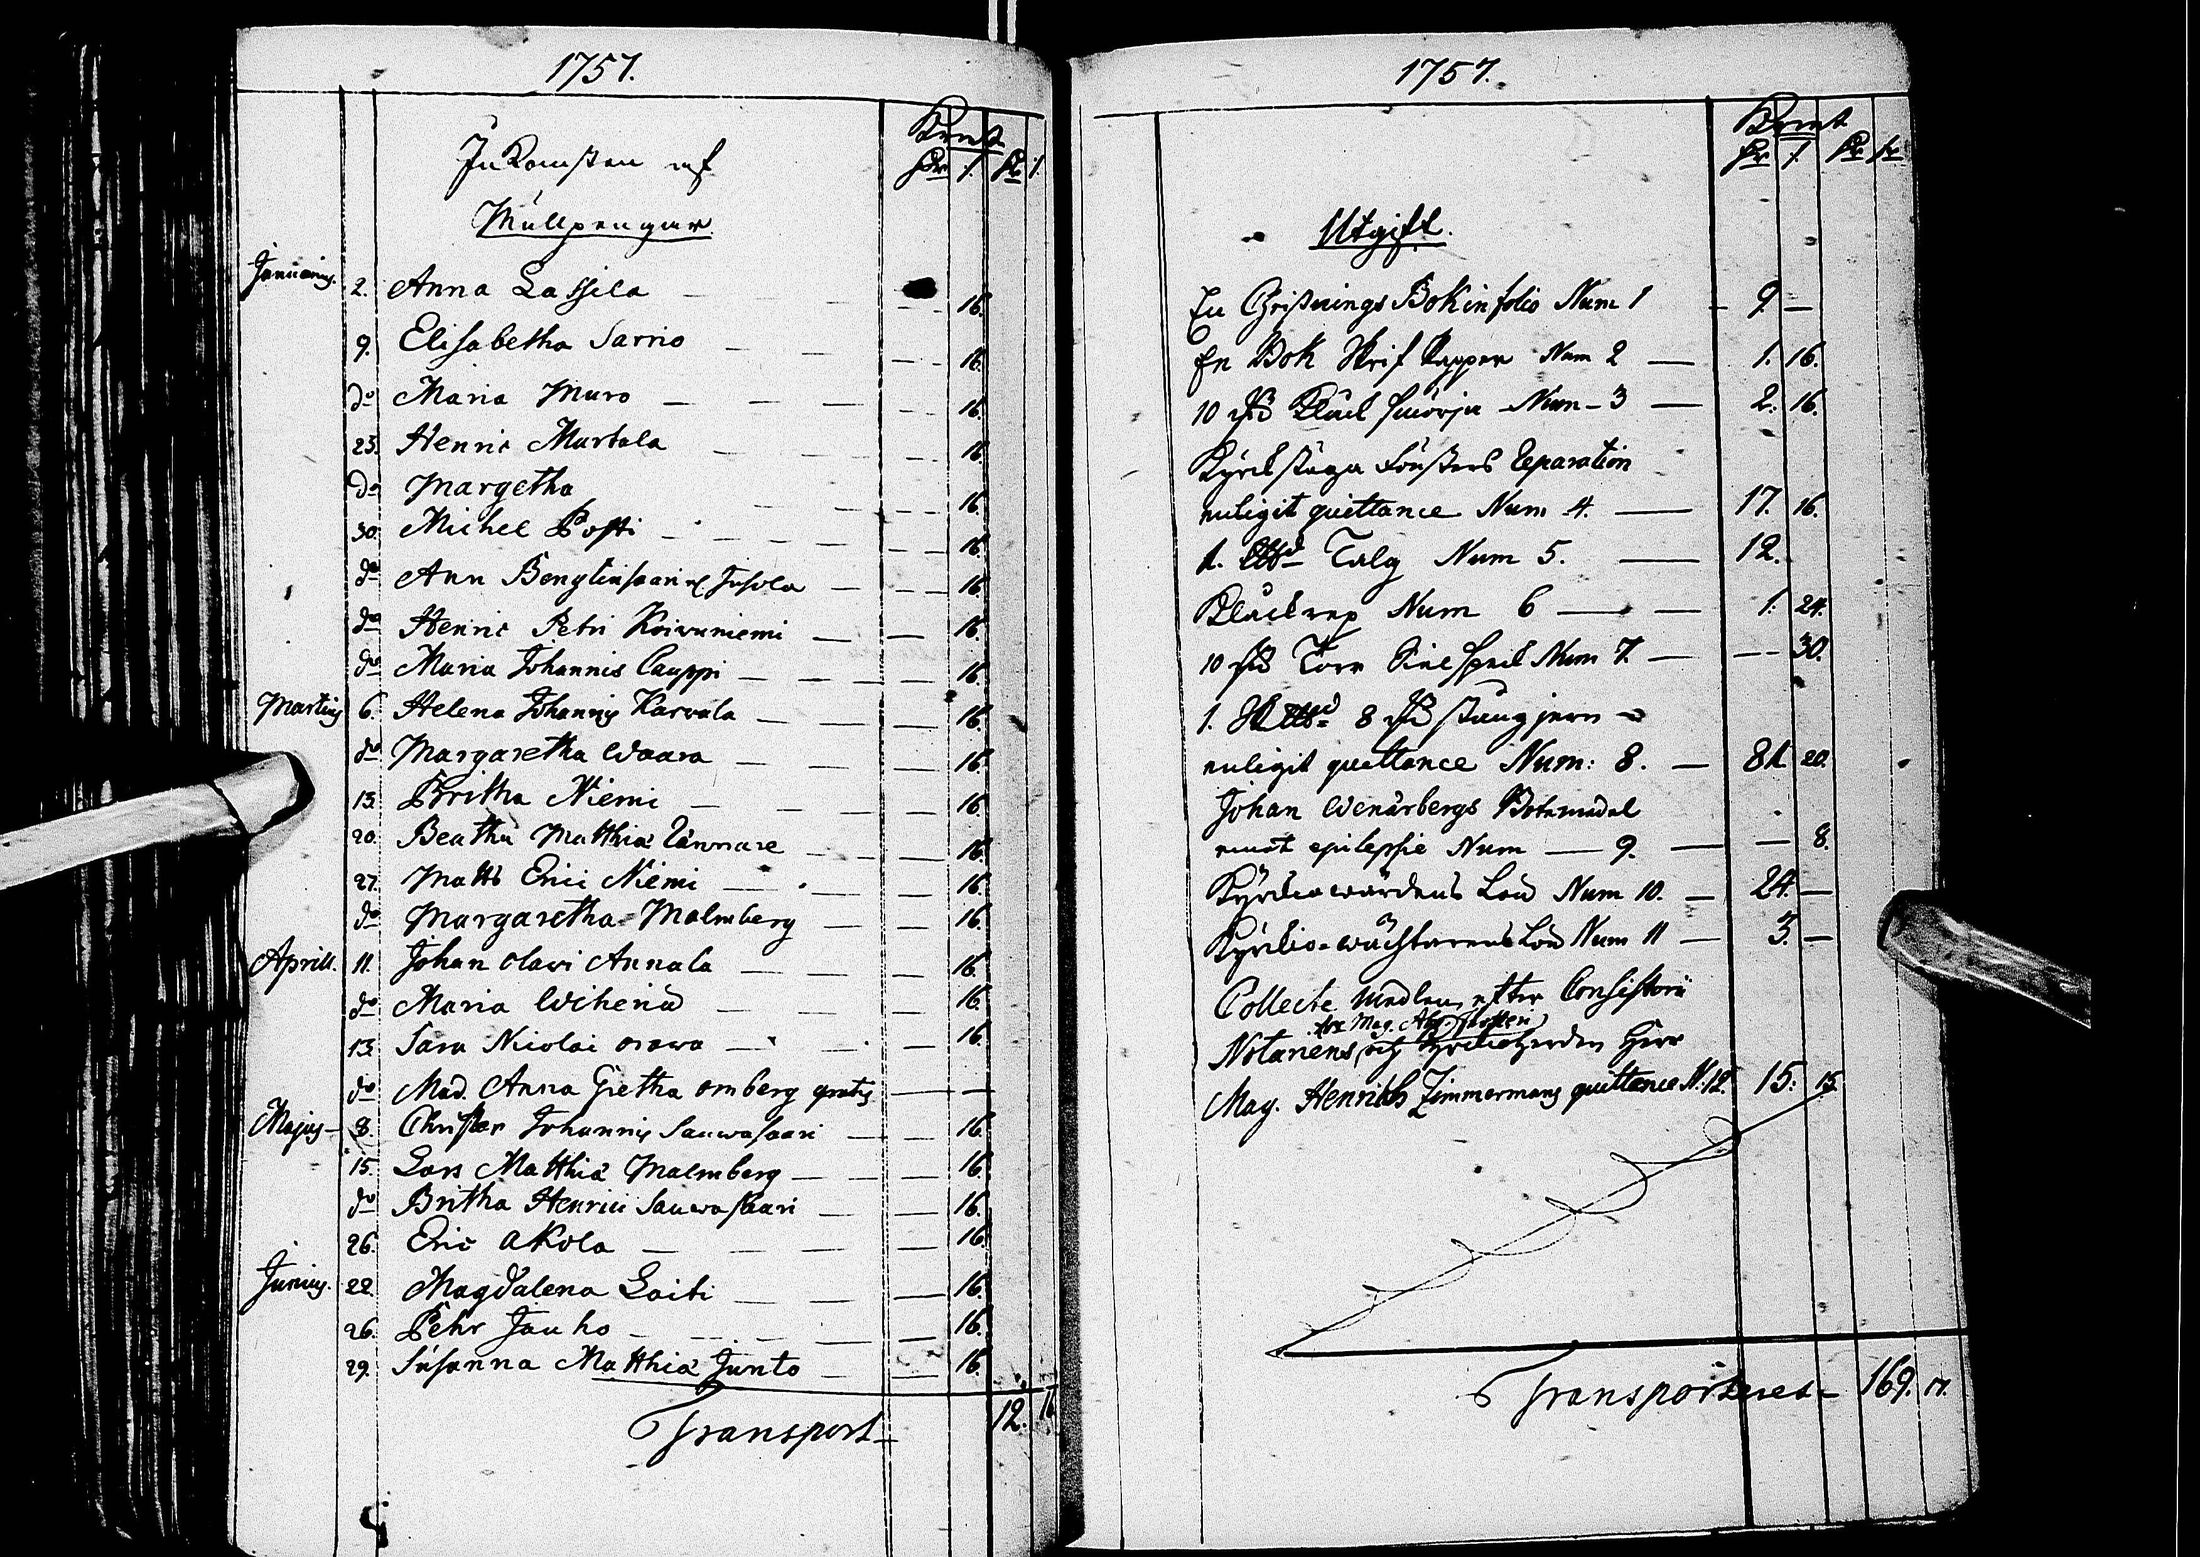 1757.
Kpmt
Inkomsten af
Mullpengar
Januarius. 2. Anna Lassila 16.
9. Elisabetha Sarrio 16.
do Maria Muro 16.
23. Henric Murtola 16.
do Margetha 16.
30. Michel Posti 16.
do Ann Bengtinsaari Jusola 16.
do Henric Petri Koivuniemi 16.
do Maria Johannis Cauppi 16.
Martius 6. Helena Johannis Karvala 16.
do Margaretha Waara 16.
13. Britha Niemi 16.
20. Beatha Matthiæ 16.
27. Matts Erici Niemi 16.
do Margaretha Malmberg 16.
Aprill. 11. Johan Olavi Annala 16.
do Maria 16.
13. Sara Nicolai Orawa 16.
do Mad. Anna Gretha Omberg gratis
Majus 8. Christer Johannis Sauwasaari 16.
15. Lars Matthiæ Malmberg 16.
do Britha Henrici Sauwasaari 16.
26. Eric Akola 16.
Junius. 22. Magdalena Laiti 16.
26. Pehr Jauho 16.
29. Susanna Matthiæ Junto 16.
Transport 12. 16
1757.
Kpmt
Utgift.
En Christnings Bok in folio Num 1 9. —
En Bok Skrif Papper Num. 2 — 1. 16.
10 Klock smörja Num 3 — 2. 16.
Kyrckstugu Fönsters Reparation
enligit quittance Num 4. — 17. 16.
1. Talg Num 5. — 12.
Klockrep Num 6 — 1. 24.
10 Num 7. — 30.
1. 8 stångjern
enligit quittance Num: 8. — 81 20.
Johan Wenärbergs Botemedel
emot epilepsie Num — 9. — 8.
Kyrckiowärdens Lön Num 10. — 24. —
Kyrckio-wächtarens Lön Num 11 — 3. —
Collecte Medlen efter Consistorii
Notariens och Kyrckioherden Herr
Mag. Henrich Zimmermans quittance N. 12. 15. 15.
Transporteret 169. 17.